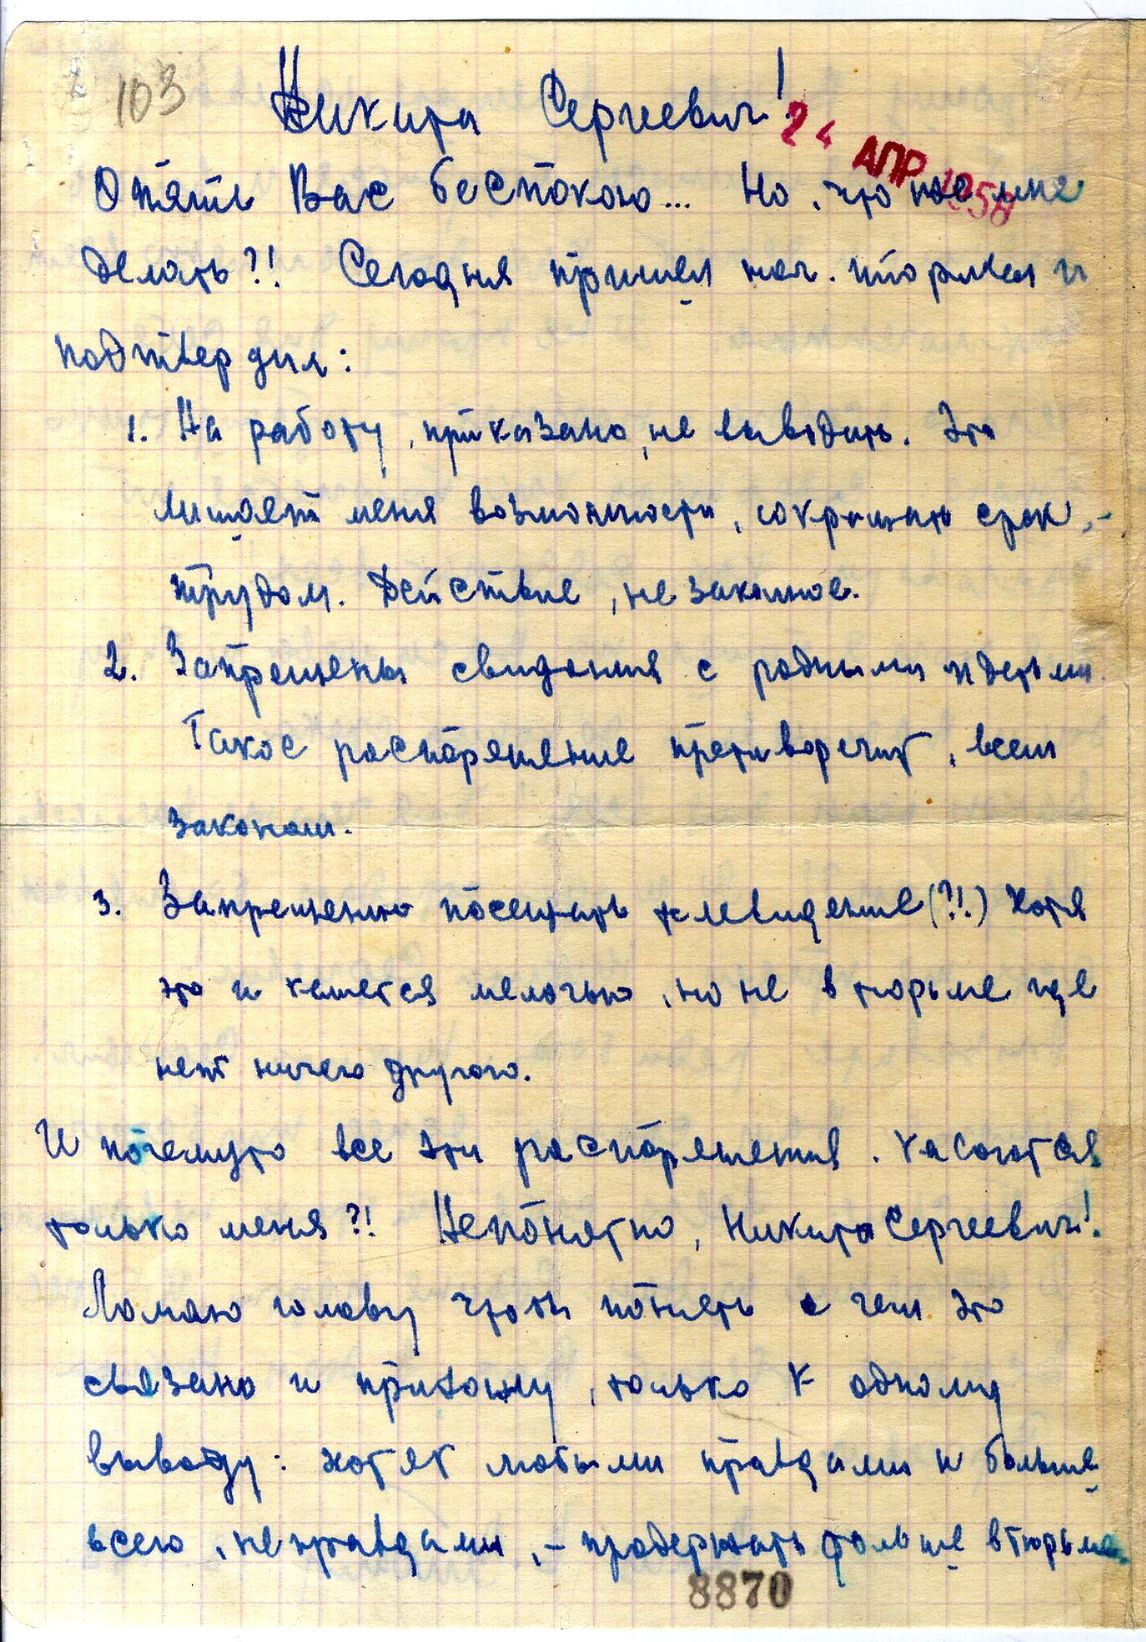 103
Никита Сергеевич!
24 АПР 1958
Опять Вас беспокою... Но, что же мне
делать?! Сегодня пришел нач. тюрмы и
подтвердил:
1. На работу, приказано, не выводить. Это
лишает меня возможности, сокращать срок, -
трудом. Действие, не законное.
2. Запрещены свидания с родными и детьми.
Такое распоряжение противоречит, всем
законам.
3. Запрещенно посещать телевидение (?!) Хотя
это и кажется мелочью, но не в тюрьме где
нет ничего другого.
И почемуто все эти распоряжения. касаются
только меня?! Непонятно, Никита Сергеевич!
Ломаю голову чтобы понять с чем это
связано и прихожу, только к одному
выводу: хотят любыми правдами и больше
всего, неправдами, - продержать дольше в тюрьме.
8870